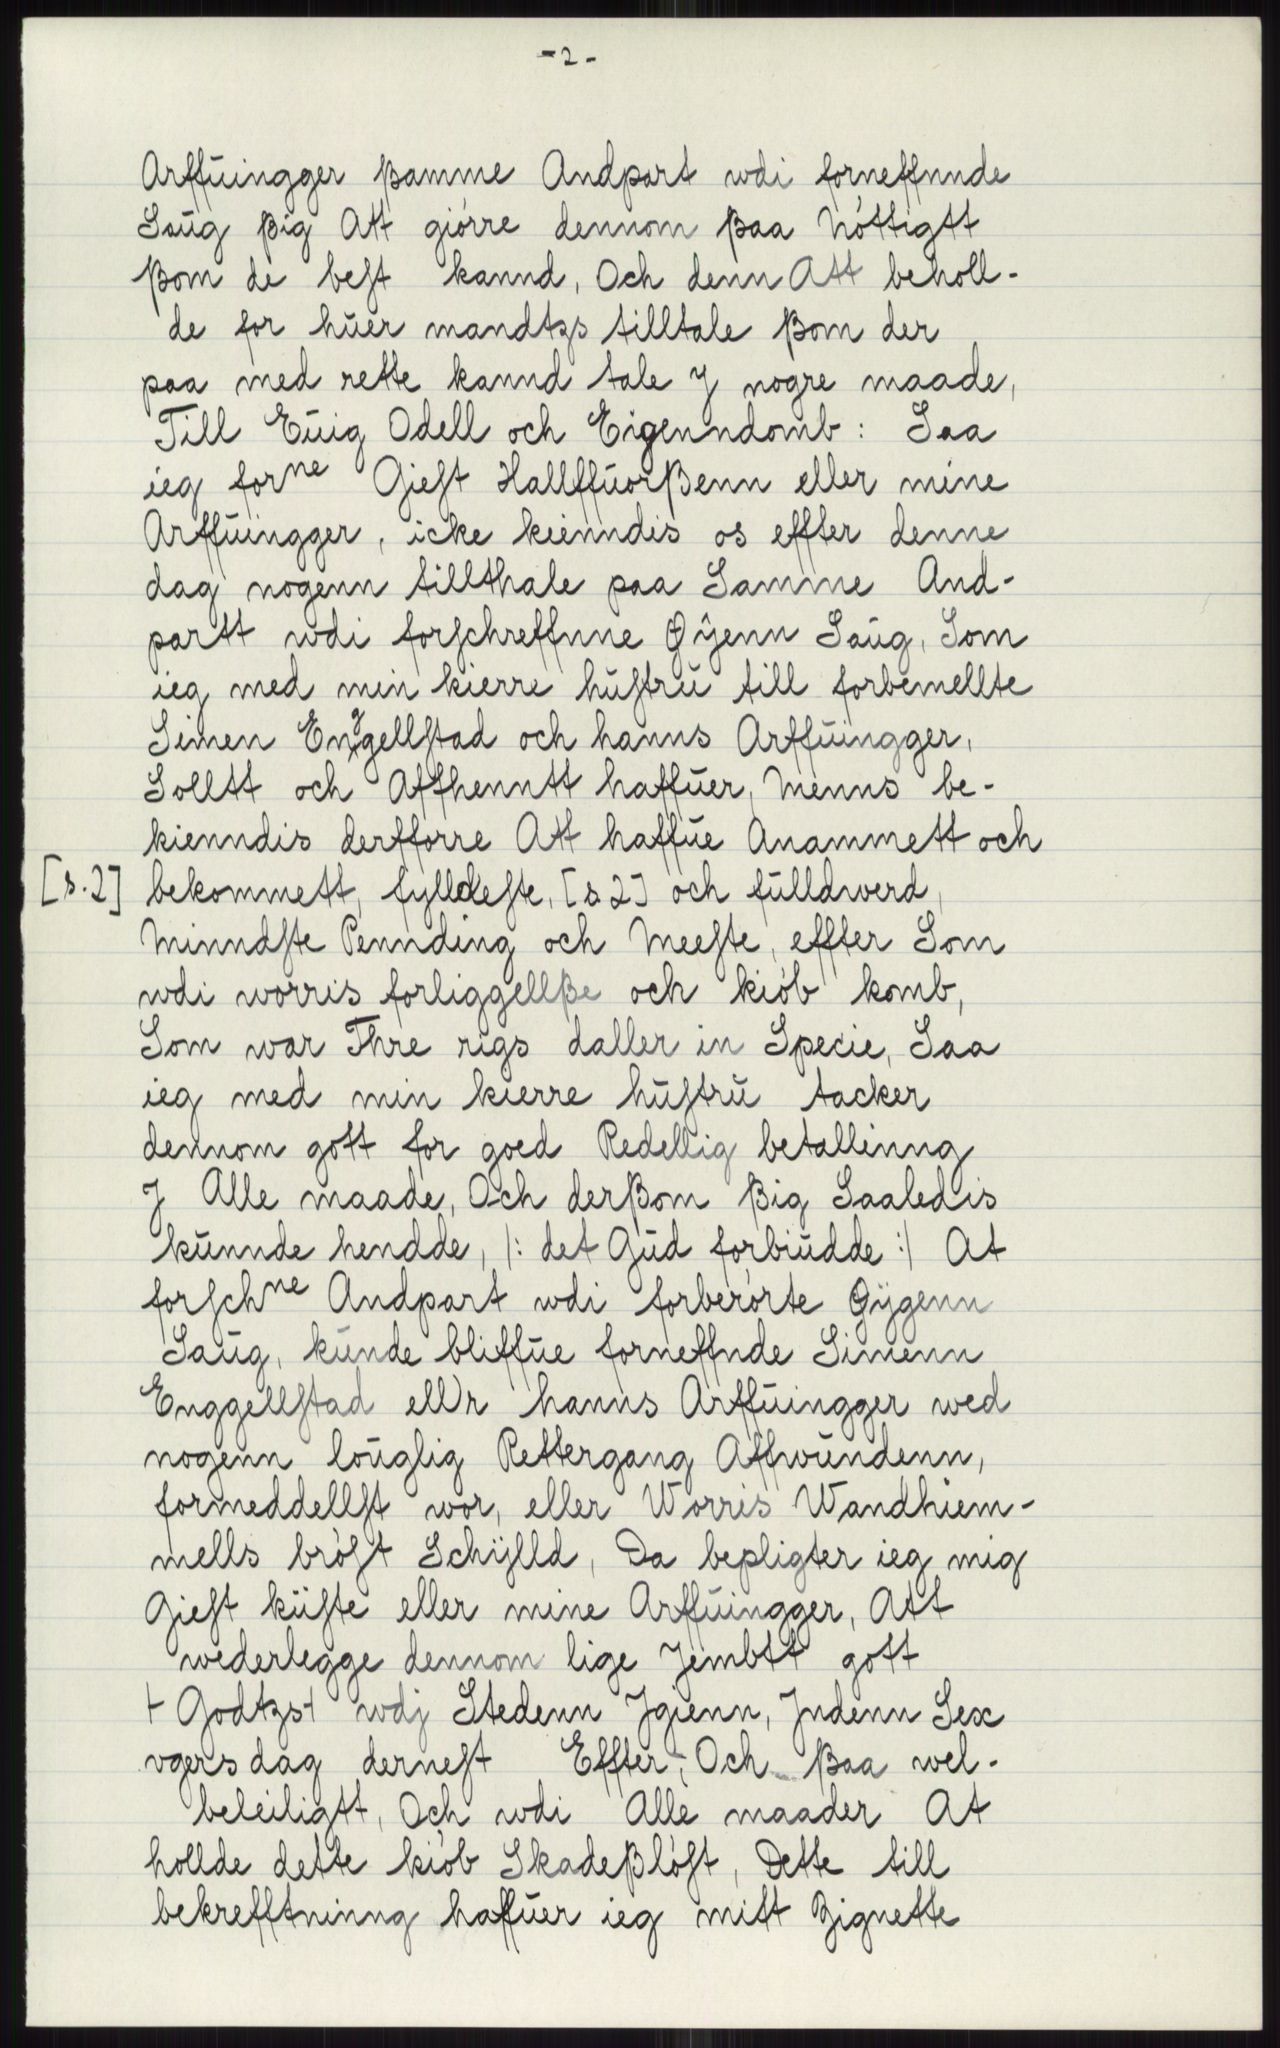 -2-
Arffūingger ßamme Andpart wdi forneffnnde
Saūg ßig Att giórre dennom ßaa Nóttigtt
ßom de best kannd, Och denn Att beholl-
de for hūer mandtzs tilltale ßom der
paa med rette kannd tale J nogre maade,
Till Eūig Odell och Eigenndomb: Saa
ieg forne Giest HallffūorßEnn eller mine
Arffūingger, icke kienndis os effter denne
dag nogenn tillthale paa Samme And-
partt wdi forschreffnne Øÿenn Saūg, Som
ieg med min kierre hūstrū till forbemellte
Simen Engellstad och hanns Arffūingger,
Solltt och Affhenntt haffūer, Menns be-
kienndis derfforre Att haffūe Anammett och
[s.2] bekommett, fylldeste, [s.2] och fūlldwerd,
Minndste Pennding och Meeste, effter Som
wdi worris forliggellße och kiób komb,
Som war Thre rigs daller in Specie, Saa
ieg med min kierre hūstrū tacker
dennom gott for goed Redellig betallinng
J Alle maade, Och derßom ßig Saaledis
kūnnde hendde, /: det Gūd forbiūdde :/ At
forschne Andpart wdi forberórte Øÿgenn
Saūg, kūnde bliffūe forneffnde Simenn
Enggellstad ell'r hanns Arffūingger wed
nogenn loūglig Rettergang Affwūndenn,
formeddellst wor, eller Worris Wandhiem-
mells bróst Schÿlld, Da bepligter ieg mig
Giest kūste eller mine Arffūingger, Att
wederlegge dennom lige Jembtt gott
+ Godtzs+ wdj Stedenn Jgienn, Jndenn Sex
vgersdag dernest Effter, Och ßaa wel-
beleiligtt, Och wdi Alle maader At
hollde dette kiób Skadeßlóst, Dette till
bekrefftninng haffūer ieg mitt Zignette